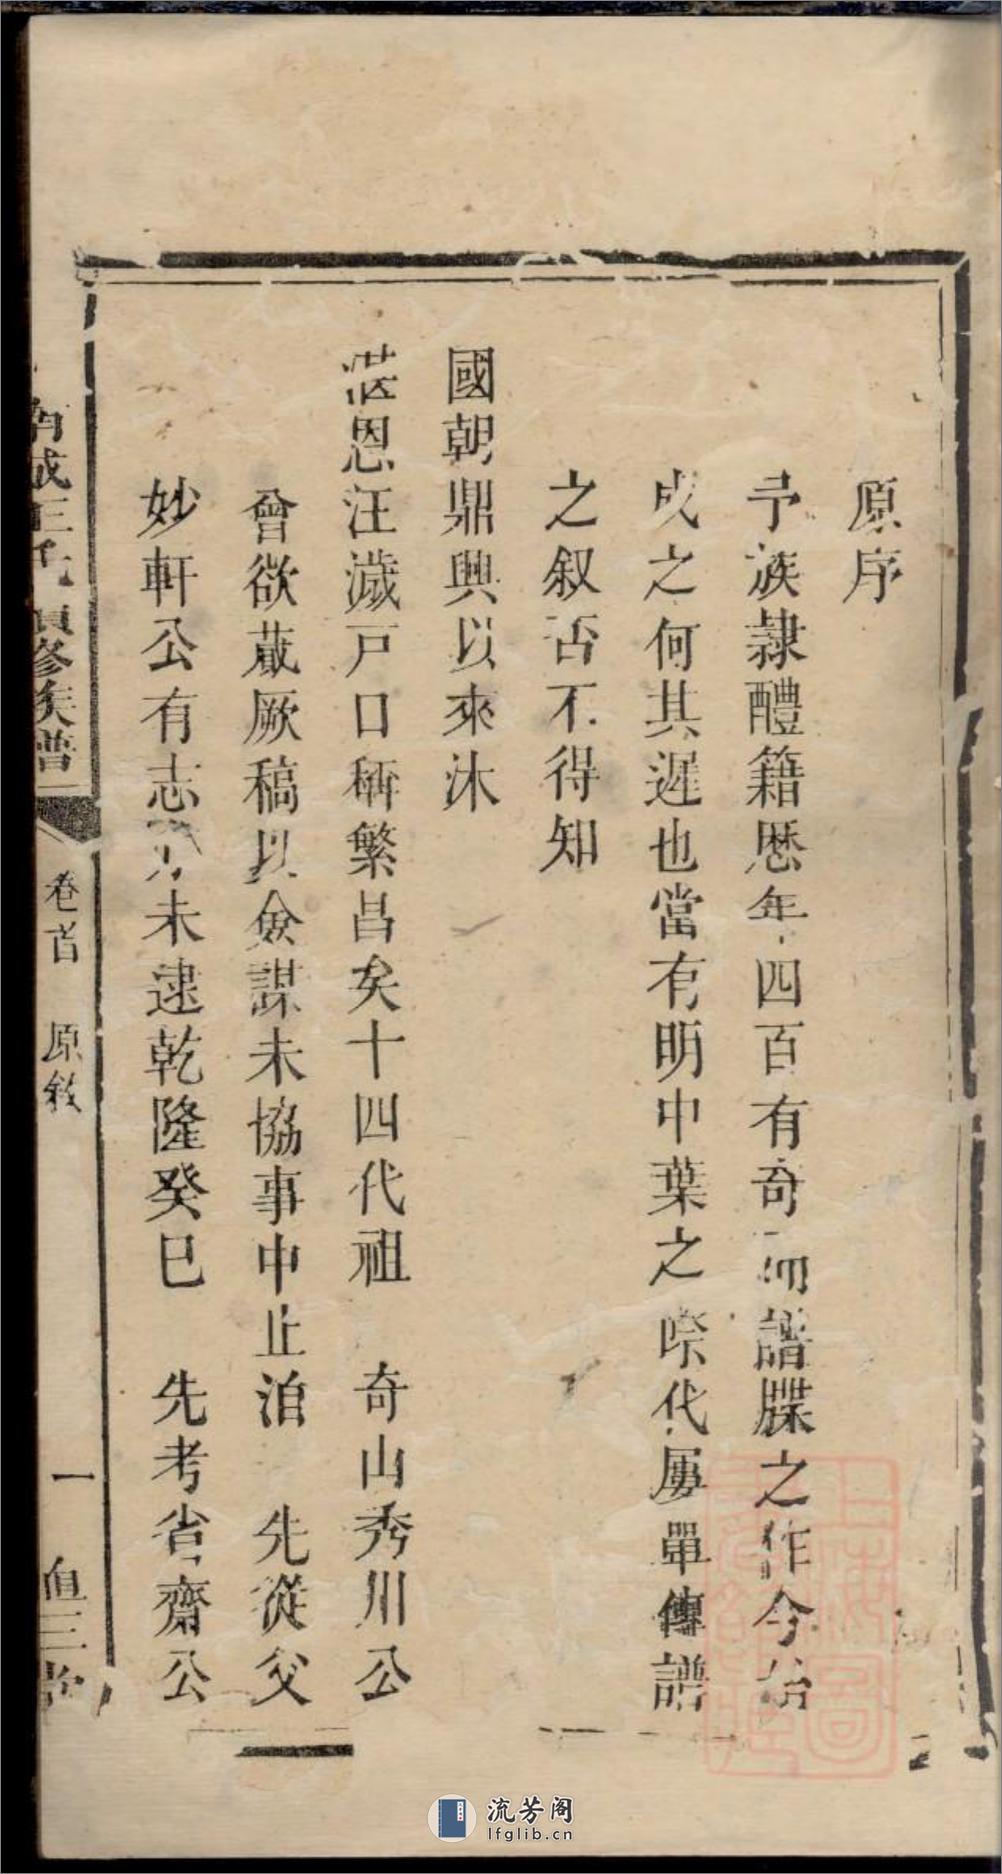 原序
予族隷醴籍歷年四百有奇而譜牒之作今始
成之何其遲也當有明中葉之際代屢單傳譜
之叙否不得知
國朝鼎興以來沐
湛恩汪濊戸口稱繁昌矣十四代祖　奇山秀川公
曾欲蕆厥稿以僉謀未協事中止洎　先從父
妙軒公有志亦未逮乾隆癸巳　先考省齋公
王氏 修族譜
卷首　原敘
一
三
流芳阁
lfglib.cn